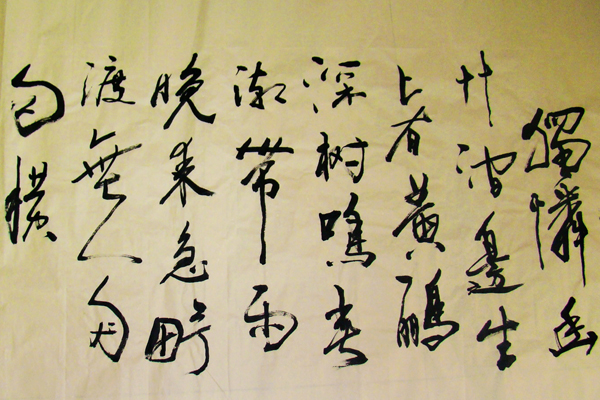 獨憐幽
草澗邊生
上有黃鸝
深树鳴春
潮帶雨
晚来急野
渡無人舟
自橫